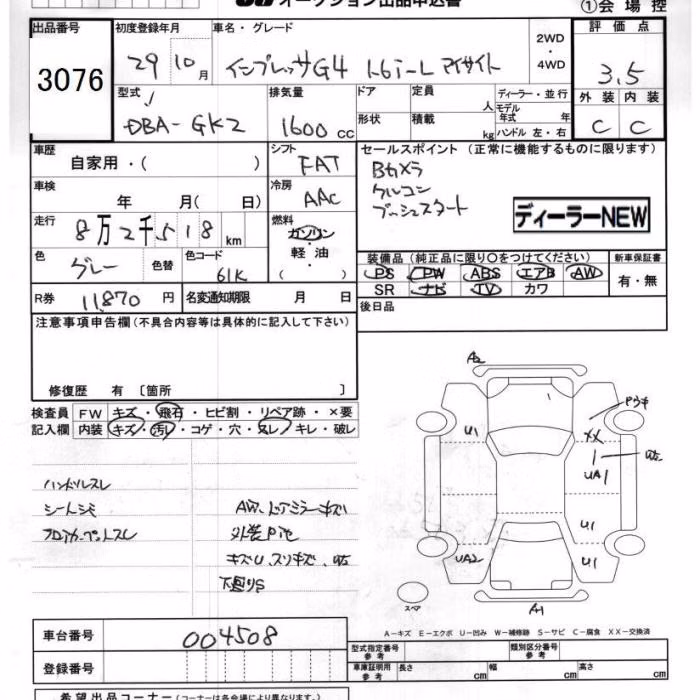 オークション出品申込書
①会場控
出品番号
3076
初度登録年月
29 10月
車名・グレード
インプレッサG4 1.6i-L アイサイト
2WD
・
4WD
評価点
3.5
外装 内装
C C
型式
DBA-GK2
排気量
1600 cc
ドア
形状
定員 人
積載 kg
ディーラー・並行
モデル年式 年
ハンドル 左・右
車歴
自家用・( )
シフト
FAT
セールスポイント (正常に機能するものに限ります)
Bカメラ
クルコン
プッシュスタート
ディーラーNEW
車検
年 月( 日)
冷房
AAC
走行
8万2千518km
燃料
ガソリン
・
軽油
・
( )
色
グレー
色替
色コード
61K
装備品(純正品に限り○をつけてください)
PS PW ABS エアB AW
SR ナビ TV カワ
新車保証書
有・無
R券 11,870 円
名変通知期限 月 日
後日品
注意事項申告欄(不具合内容等は具体的に記入して下さい)
修復歴 有 〔箇所 〕
検査員記入欄
FW キズ・飛石・ヒビ割・リペア跡・×要
内装 キズ・汚・コゲ・穴・スレ・キレ・破レ
ハンドルスレ
シートシミ
フロアカーペットスレ
AW、ドアミラーキズ
外装Pitc
キズU、スリキズ、
下廻りS
A2
U1
XX
UA1
U1
UA2
U1
A1
スペア
A-キズ E-エクボ U-凹み W-補修跡 S-サビ C-腐食 XX-交換済
車台番号 004508
登録番号
型式指定番号 参考
類別区分番号 参考
車庫証明用 参考 長さ cm 幅 cm 高さ cm
希望出品コーナー(コーナーは各会場により異なります。)